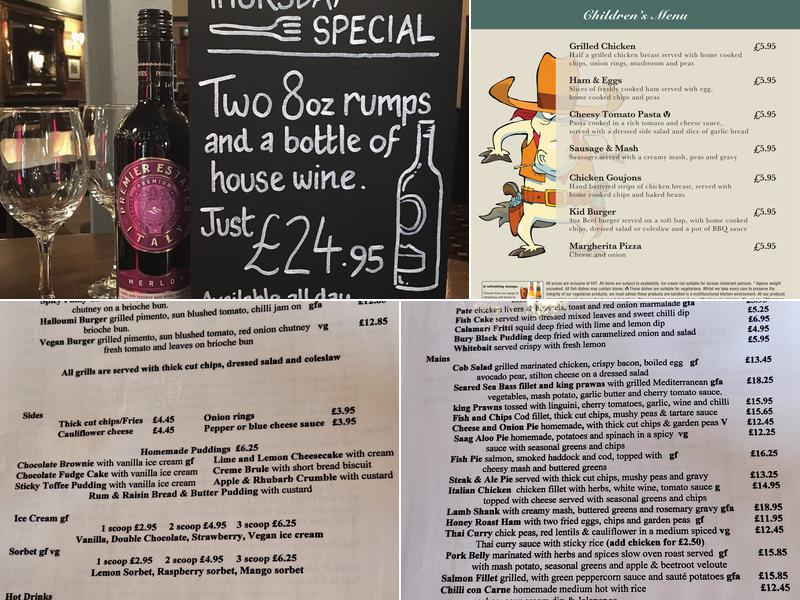 THURSDAY
SPECIAL
Two 8oz rumps
and a bottle of
house wine.
Just £24.95
Available all day
PREMIER ESTATES
PREMIUM
ITALY
MERLOT
Children's Menu
Grilled Chicken £5.95
Half a grilled chicken breast served with home cooked
chips, onion rings, mushroom and peas
Ham & Eggs £5.95
Slices of freshly cooked ham served with egg,
home cooked chips and peas
Cheesy Tomato Pasta £5.95
Pasta cooked in a rich tomato and cheese sauce,
served with a dressed side salad and slice of garlic bread
Sausage & Mash £5.95
Sausages served with a creamy mash, peas and gravy
Chicken Goujons £5.95
Hand battered strips of chicken breast, served with
home cooked chips and baked beans
Kid Burger £5.95
4oz Beef burger served on a soft bap, with home cooked
chips, dressed salad or coleslaw and a pot of BBQ sauce
Margherita Pizza £5.95
Cheese and onion
A refreshing change.
All prices are inclusive of VAT. All items are subject to availability.
chutney on a brioche bun.
Halloumi Burger grilled pimento, sun blushed tomato, chilli jam on gfa
brioche bun.
Vegan Burger grilled pimento, sun blushed tomato, red onion chutney vg £12.85
fresh tomato and leaves on brioche bun
All grills are served with thick cut chips, dressed salad and coleslaw
Sides
Thick cut chips/Fries £4.45 Onion rings £3.95
Cauliflower cheese £4.45 Pepper or blue cheese sauce £3.95
Homemade Puddings £6.25
Chocolate Brownie with vanilla ice cream gf Lime and Lemon Cheesecake with cream
Chocolate Fudge Cake with vanilla ice cream Creme Brule with short bread biscuit
Sticky Toffee Pudding with vanilla ice cream Apple & Rhubarb Crumble with custard
Rum & Raisin Bread & Butter Pudding with custard
Ice Cream gf
1 scoop £2.95 2 scoop £4.95 3 scoop £6.25
Vanilla, Double Chocolate, Strawberry, Vegan ice cream
Sorbet gf vg
1 scoop £2.95 2 scoop £4.95 3 scoop £6.25
Lemon Sorbet, Raspberry sorbet, Mango sorbet
Hot Drinks
Pate chicken livers toast and red onion marmalade gfa
Fish Cake served with dressed mixed leaves and sweet chilli dip £5.25
Calamari Fritti squid deep fried with lime and lemon dip £6.95
Bury Black Pudding deep fried with caramelized onion and salad £4.95
Whitebait served crispy with fresh lemon £5.95
Mains
Cob Salad grilled marinated chicken, crispy bacon, boiled egg gf £13.45
avocado pear, stilton cheese on a dressed salad
Seared Sea Bass fillet and king prawns with grilled Mediterranean gfa £18.25
vegetables, mash potato, garlic butter and cherry tomato sauce.
king Prawns tossed with linguini, cherry tomatoes, garlic, wine and chilli £15.95
Fish and Chips Cod fillet, thick cut chips, mushy peas & tartare sauce £15.65
Cheese and Onion Pie homemade, with thick cut chips & garden peas V £12.45
Saag Aloo Pie homemade, potatoes and spinach in a spicy vg £12.25
sauce with seasonal greens and chips
Fish Pie salmon, smoked haddock and cod, topped with gf £16.25
cheesy mash and buttered greens
Steak & Ale Pie served with thick cut chips, mushy peas and gravy £13.25
Italian Chicken chicken fillet with herbs, white wine, tomato sauce g £14.95
topped with cheese served with seasonal greens and chips
Lamb Shank with creamy mash, buttered greens and rosemary gravy gfa £18.95
Honey Roast Ham with two fried eggs, chips and garden peas gf £11.95
Thai Curry chick peas, red lentils & cauliflower in a medium spiced vg £12.45
Thai curry sauce with sticky rice (add chicken for £2.50)
Pork Belly marinated with herbs and spices slow oven roast served gf £15.85
with mash potato, seasonal greens and apple & beetroot veloute
Salmon Fillet grilled, with green peppercorn sauce and sauté potatoes gfa £15.85
Chilli con Carne homemade medium hot with rice £12.45